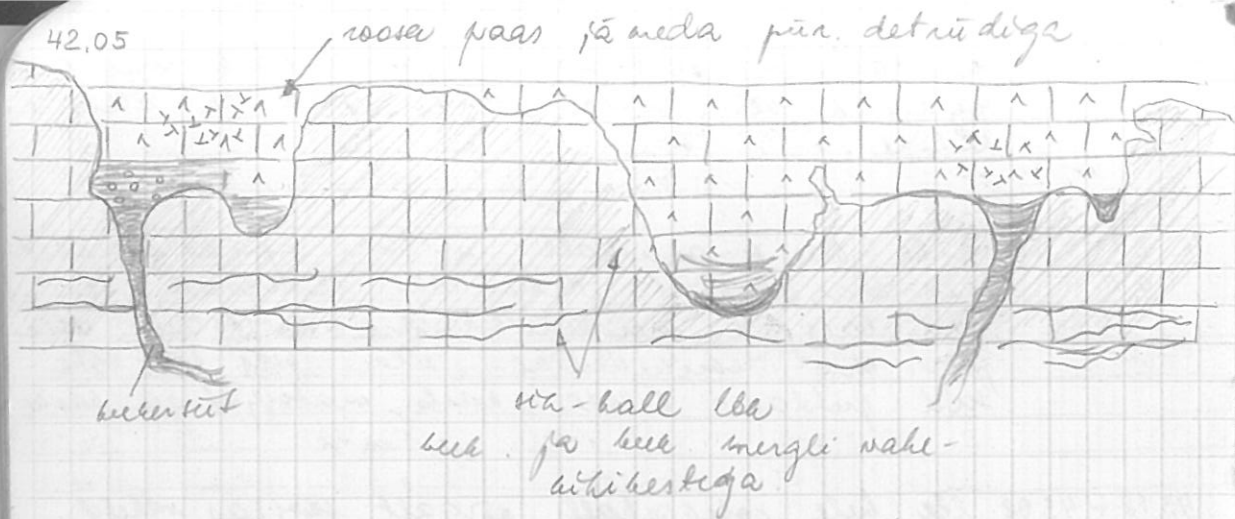 42.05
roosa paas jämeda pür. detriidiga
kukersiit
sin-hall lbk
kuk. ja kuk. mergli vahe-
kihikestega